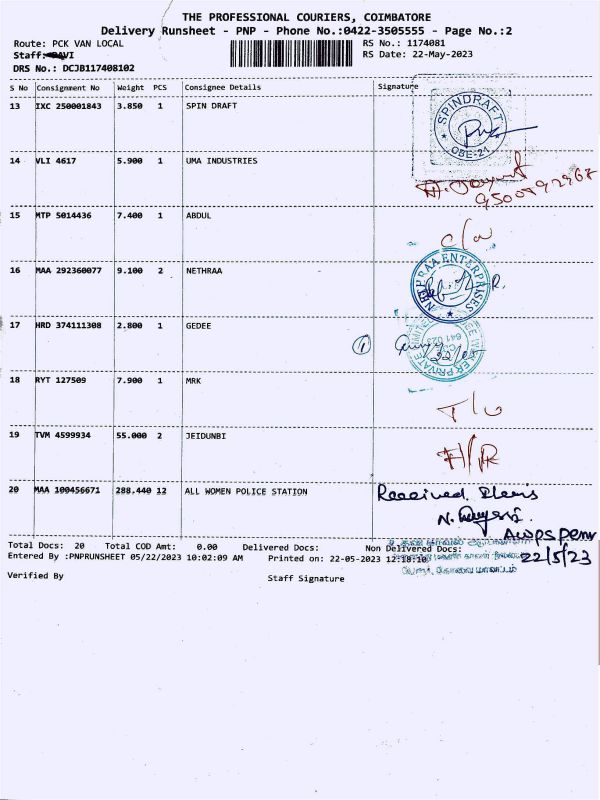 THE PROFESSIONAL COURIERS, COIMBATORE
Delivery Runsheet - PNP - Phone No.:0422-3505555 - Page No.:2
Route: PCK VAN LOCAL RS No.: 1174081
Staff: RS Date: 22-May-2023
DRS No.: DCJB117408102
S No Consignment No Weight PCS Consignee Details Signature
13 IXC 250001843 3.850 1 SPIN DRAFT
SPINDRAFT
CBE-21
14 VLI 4617 5.900 1 UMA INDUSTRIES
15 MTP 5014436 7.400 1 ABDUL
16 MAA 292360077 9.100 2 NETHRAA
NETHRAA ENTERPRISES
17 HRD 374111308 2.800 1 GEDEE
18 RYT 127509 7.900 1 MRK
19 TVM 4599934 55.000 2 JEIDUNBI
20 MAA 100456671 288.440 12 ALL WOMEN POLICE STATION
Received
22/5/23
Total Docs: 20 Total COD Amt: 0.00 Delivered Docs: Non Delivered Docs:
Entered By :PNPRUNSHEET 05/22/2023 10:02:09 AM Printed on: 22-05-2023 12:18:10
Verified By Staff Signature